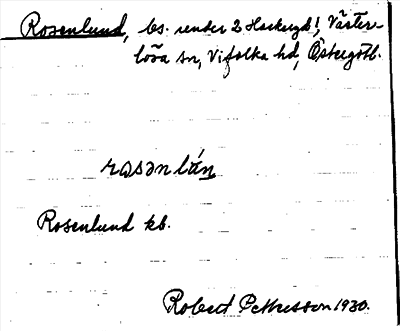 Rosenlund, bs. under 2 Hackeryd!, Väster-
lösa sn, Vifolka hd, Östergötl.
rosənlún
Rosenlund kb.
Robert Pettersson 1930.